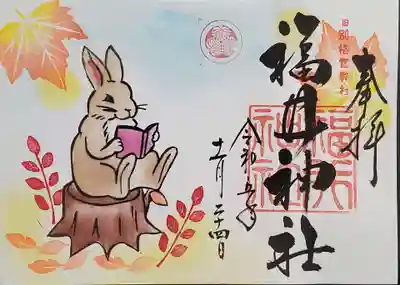 奉拝
旧別格官幣社
福井神社
福井神社
令和五年
十一月二十四日